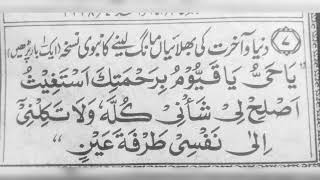 ﴿۷﴾ دنیا و آخرت کی بھلائیاں مانگ لینے کا نبوی نسخہ (ایک بار پڑھیں)
"یَا حَیُّ یَا قَیُّوْمُ بِرَحْمَتِكَ اَسْتَغِیْثُ
اَصْلِحْ لِیْ شَأْنِیْ كُلَّهٗ وَلَا تَكِلْنِیْ
اِلٰی نَفْسِیْ طَرْفَةَ عَیْنٍ"